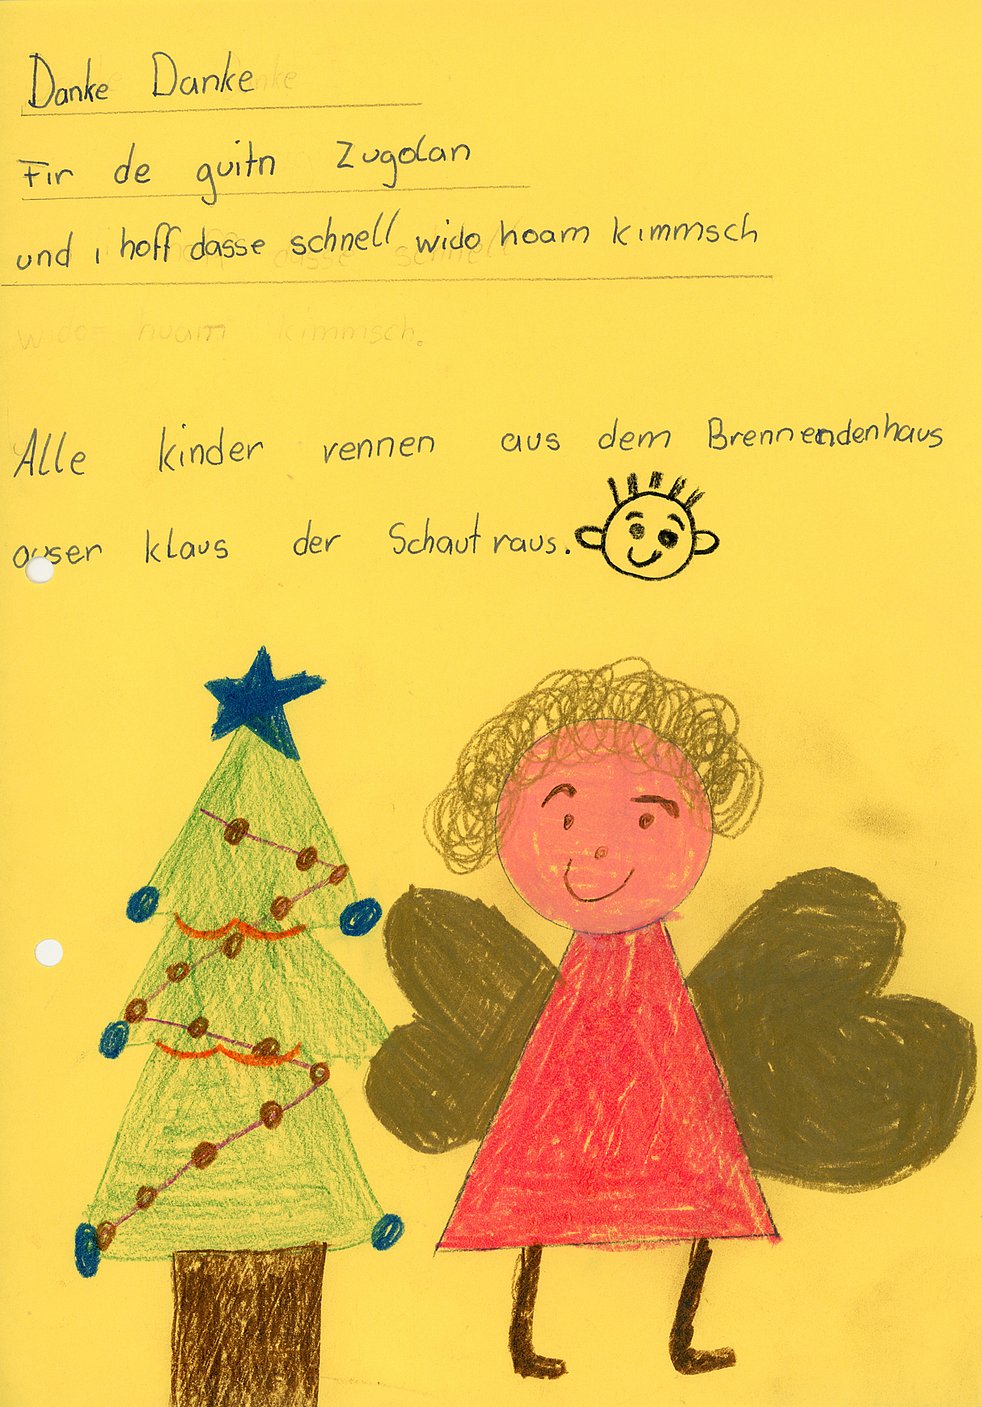 Danke Danke
Fir de guitn Zugolan
und i hoff dasse schnell wido hoam kimmsch
wido hoam kimmsch.
Alle kinder rennen aus dem Brennendenhaus
auser klaus der Schaut raus.